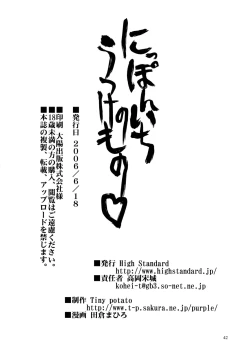 にっぽんいち
うつけの
もの♡
■発行日 2006/6/18
■印刷 大陽出版株式会社様
■18歳未満の方の購入、閲覧はご遠慮ください。
■本誌の複製、転載、アップロードを禁じます。
■発行 High Standard
http://www.highstandard.jp/
■責任者 高岡宋城
kohei-t@gb3.so-net.ne.jp
■制作 Tiny potato
http://www.t-p.sakura.ne.jp/purple/
■漫画 田倉まひろ
42